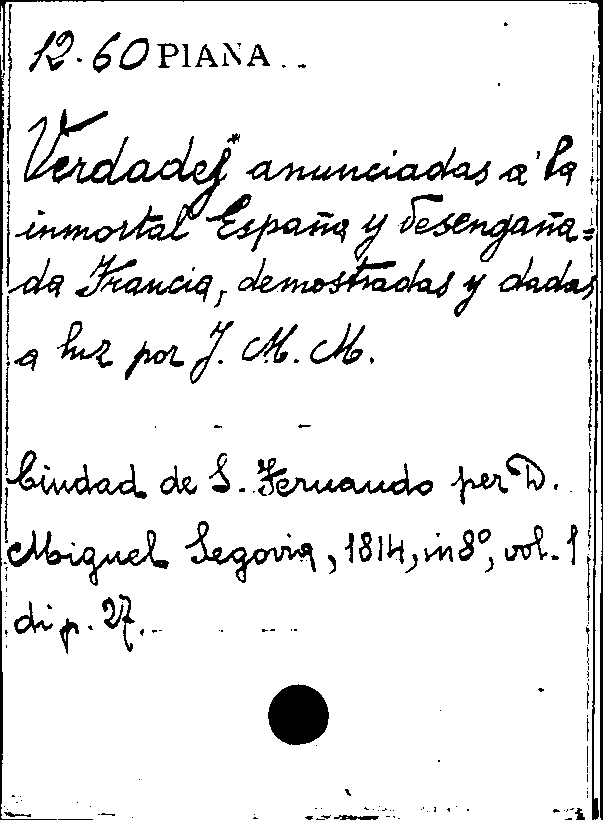 12.60 PIANA
Verdades anunciadas a' la
inmortal España y desengaña=
da Francia, demostradas y dadas
a luz por J. M. M.
Ciudad de S. Fernando per D.
Miguel Segovia, 1814, in 8º, vol. 1
di p. 27.